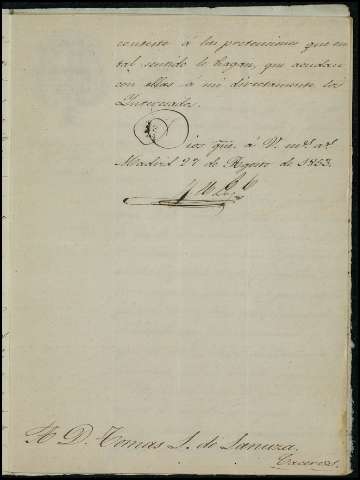 contesto á las pretensiones que en
tal sentido le hagan, que acudan
con ellas á mi directamente los
Interesados.
Dios gue. á V. ms. as.
Madrid 27 de Agosto de 1853.
A D. Tomas S. de Lanuza.
Caceres.